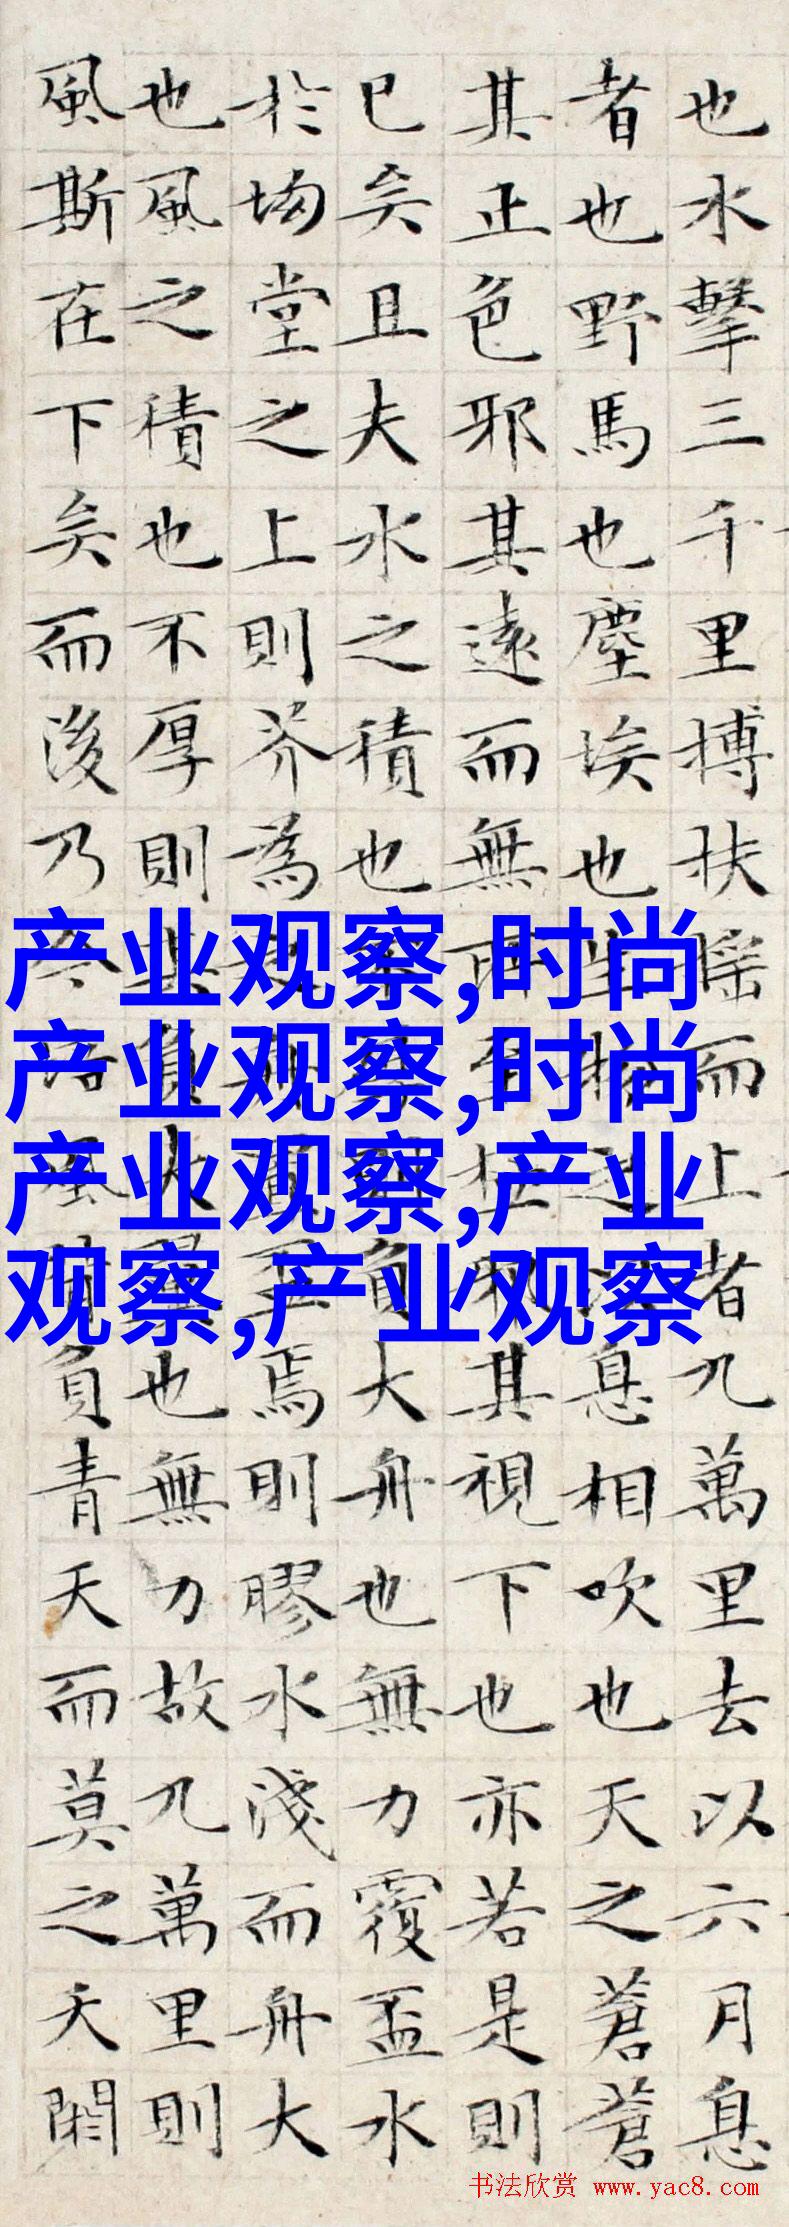 也水擊三千里搏扶摇而上者九萬里去以六月息
者也野馬也塵埃也生物息相吹也天之蒼蒼
其正色邪其遠而無所至其視下也亦若是則
已矣且夫水之積也負大舟也無力覆盃水
於坳堂之上則芥為焉則膠水淺而舟大
也風之積也不厚則其負大也無力故九萬里則
風斯在下矣而後乃今培風背負青天而莫之夭閼
产业观察,时尚
产业观察,时尚
产业观察,产业
观察,产业观察
书法欣赏 www.yac8.com